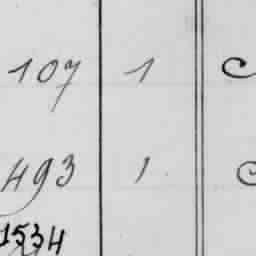 107 1
493 1
1534